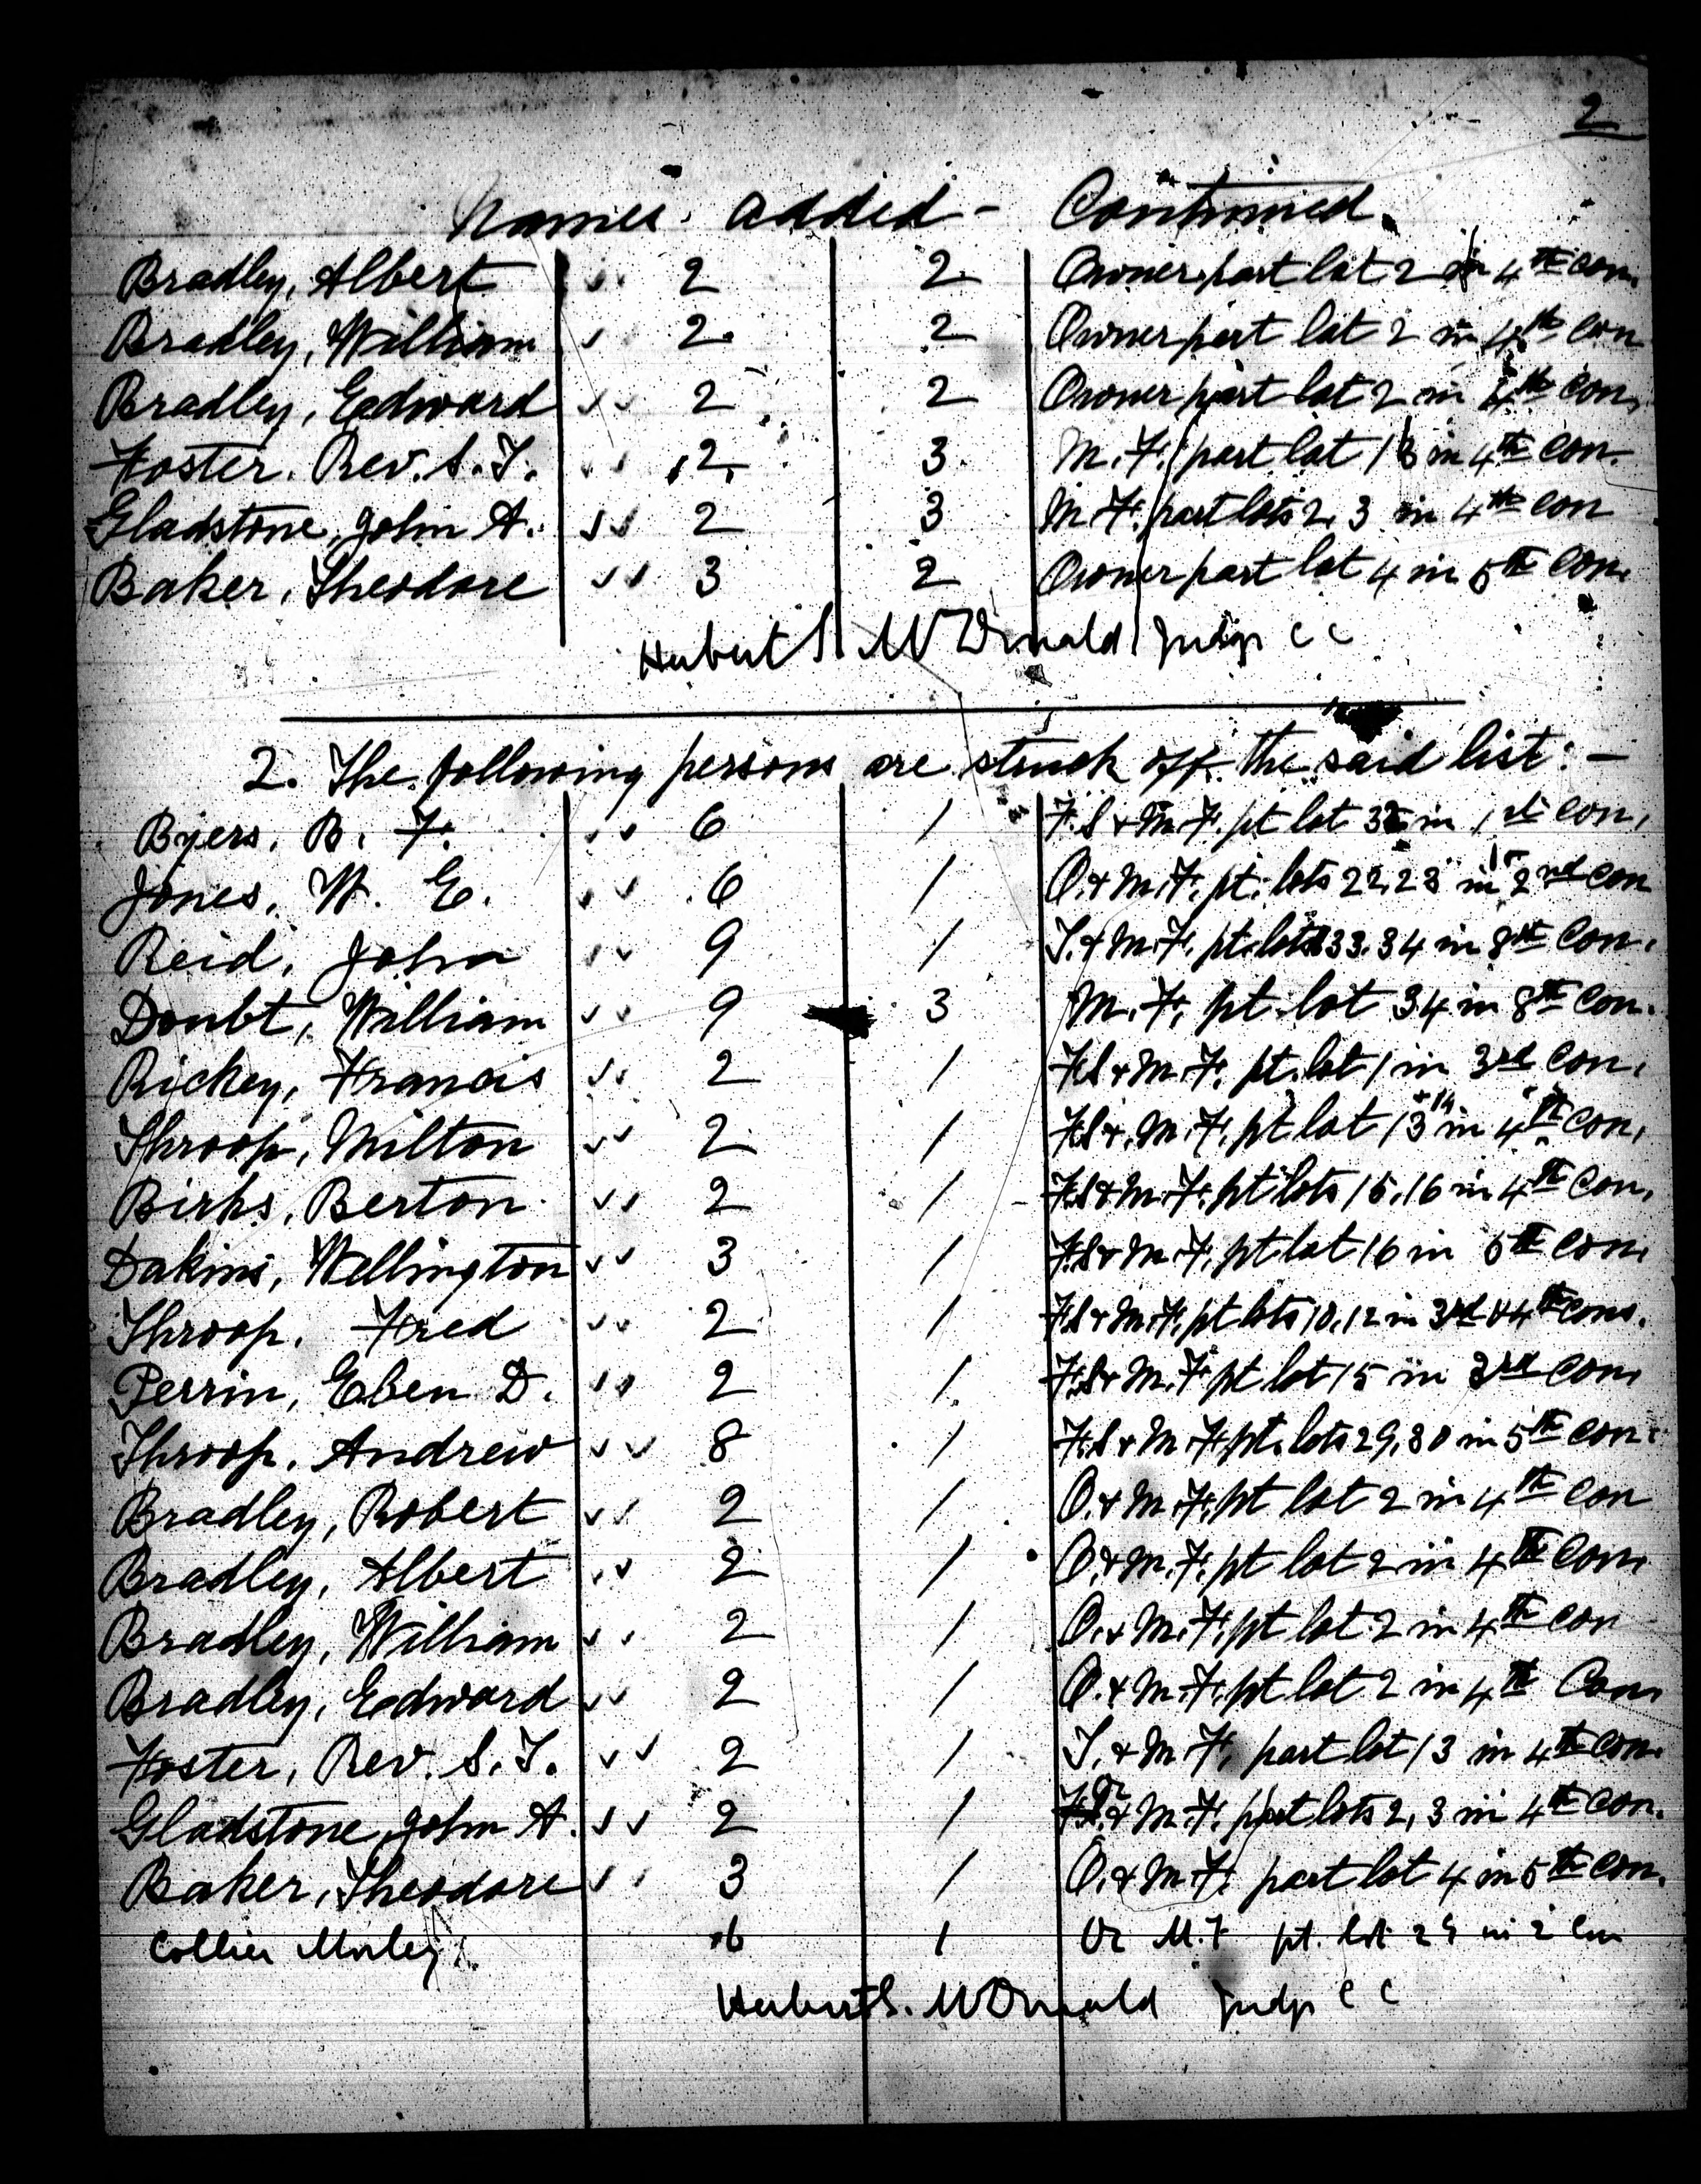 2
Names added - Continued.
Bradley, Albert 2 2 Owner part lot 2 in 4th con.
Bradley, William 2 2 Owner part lot 2 in 4th con
Bradley, Edward 2 2 Owner part lot 2 in 4th con.
Foster, Rev. S. T. 2 3 M. F. part lot 13 in 4th con.
Gladstone, John A. 2 3 M. F. part lots 2, 3 in 4th con
Baker, Theodore 3 2 Owner part lot 4 in 5th con.
Herbert S. McDonald Judge C C
2. The following persons are struck off the said list: -
Byers, B. F. 6 1 F.S & M. F. pt lot in 1st con.
Jones, W. E. 6 1 O. & M. F. pt. lots 22, 23 in 2nd con
Reid, John 9 1 T. & M. F. pt. lots 33, 34 in 8th con.
Doubt, William 9 3 M. F. pt. lot 34 in 8th con.
Rickey, Francis 2 1 F.S & M. F. pt. lot 1 in 3rd con.
Throop, Milton 2 1 F.S & M. F. pt lot 13 + 14 in 4th con.
Birks, Berton 2 1 F.S & M. F. pt lots 15, 16 in 4th con.
Dakins, Wellington 3 1 F.S & M. F. pt lot 16 in 5th con.
Throop, Fred 2 1 F.S & M. F. pt lots 10, 12 in 3rd & 4th cons.
Perrin, Eben D. 2 1 F.S & M. F. pt lot 15 in 3rd con.
Throop, Andrew 8 1 F.S & M. F. pt. lots 29, 30 in 5th con.
Bradley, Robert 2 1 O. & M. F. pt lot 2 in 4th con
Bradley, Albert 2 1 O. & M. F. pt lot 2 in 4th con.
Bradley, William 2 1 O. & M. F. pt lot 2 in 4th con
Bradley, Edward 2 1 O. & M. F. pt lot 2 in 4th Con.
Foster, Rev. S. T. 2 1 T. & M. F. part lot 13 in 4th con.
Gladstone, John A. 2 1 & M. F. part lots 2, 3 in 4th con.
Baker, Theodore 3 1 O. & M. F. part lot 4 in 5th con.
Collier Morley 6 1 M. F pt. lot 29 in 2 Con
Herbert S. McDonald Judge C C